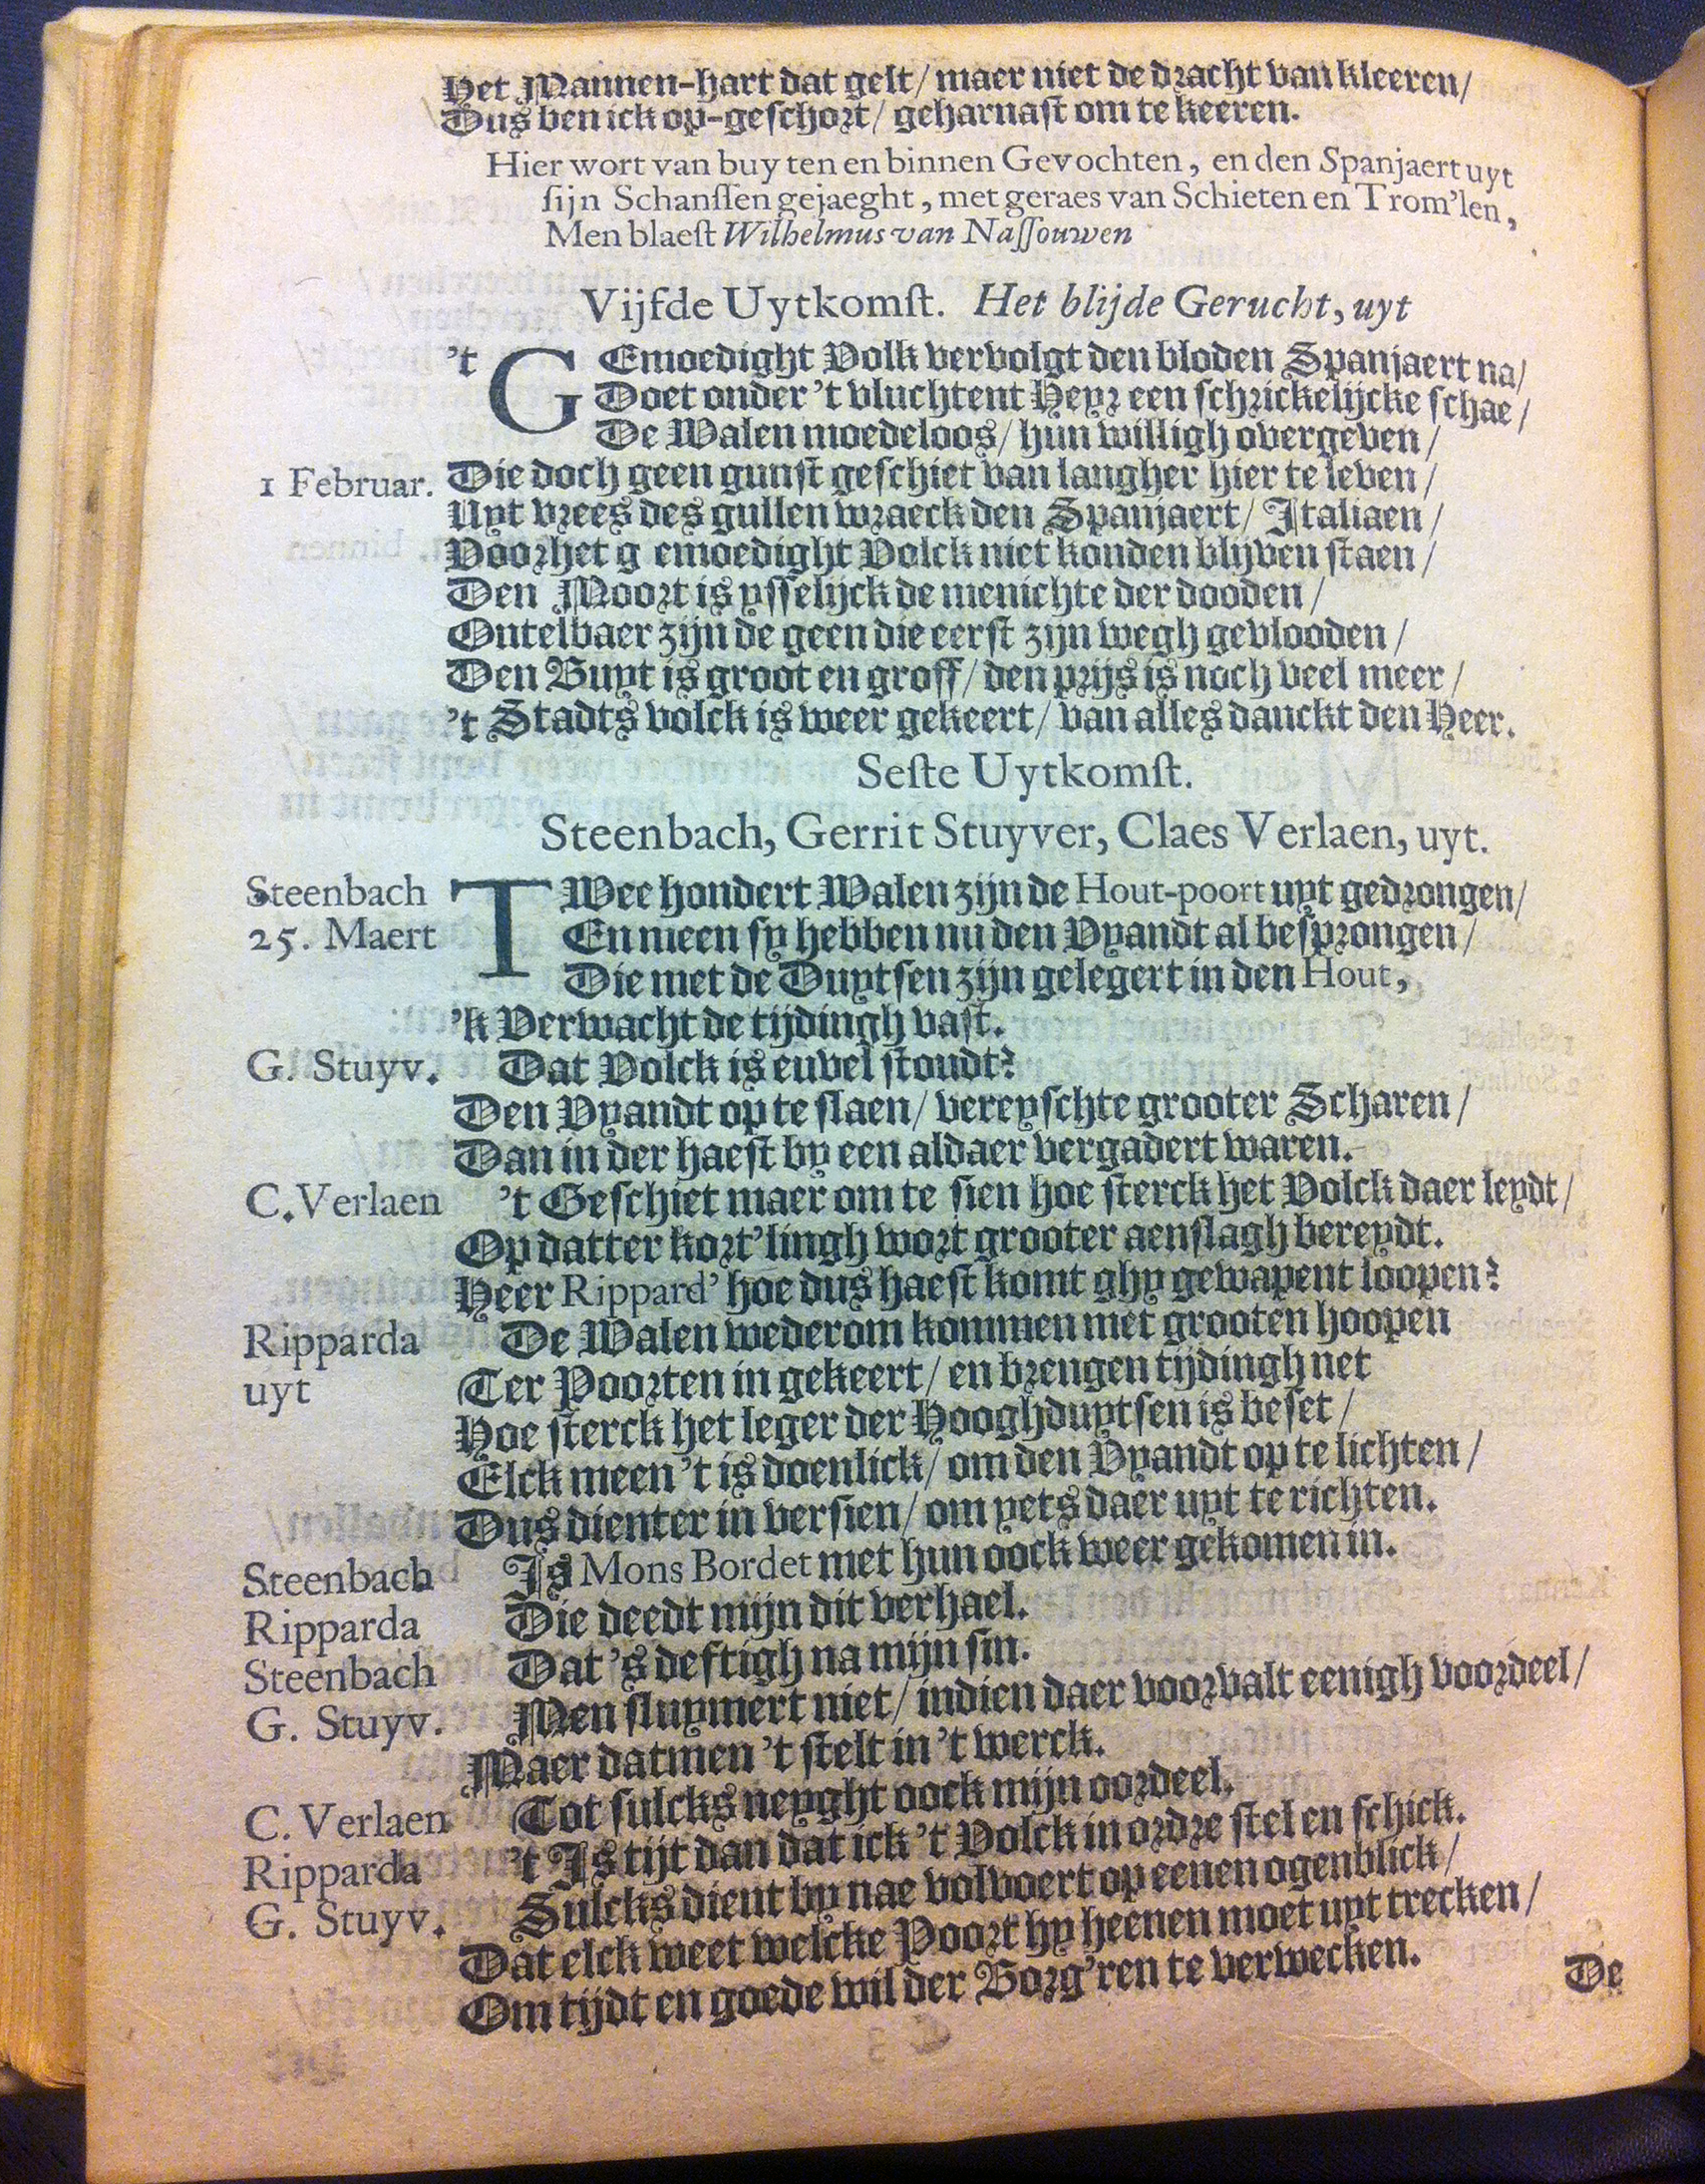 Het Mannen-hart dat gelt/ maer niet de dracht van kleeren/
Dus ben ick op-geschort/ geharnast om te keeren.
Hier wort van buyten en binnen Gevochten, en den Spanjaert uyt
sijn Schanssen gejaeght, met geraes van Schieten en Trom'len,
Men blaest Wilhelmus van Nassouwen
Vijfde Uytkomst. Het blijde Gerucht, uyt
't GEmoedight Volk vervolgt den bloden Spanjaert na/
Doet onder 't vluchtent Heyr een schrickelijcke schae/
De Walen moedeloos/ hun willigh overgeven/
1 Februar. Die doch geen gunst geschiet van langher hier te leven/
Uyt vrees des gullen wraeck den Spanjaert/ Italiaen/
Voor het g emoedight Volck niet konden blijven staen/
Den Moort is ysselijck de menichte der dooden/
Ontelbaer zijn de geen die eerst zijn wegh gevlooden/
Den Buyt is groot en groff/ den prijs is noch veel meer/
't Stadts volck is weer gekeert/ van alles danckt den Heer.
Seste Uytkomst.
Steenbach, Gerrit Stuyver, Claes Verlaen, uyt.
Steenbach TWee hondert Walen zijn de Hout-poort uyt gedrongen/
25. Maert En meen sy hebben nu den Vyandt al besprongen/
Die met de Duytsen zijn gelegert in den Hout,
'k Verwacht de tijdingh vast.
G. Stuyv. Dat Volck is euvel stoudt?
Den Vyandt op te slaen/ vereyschte grooter Scharen/
Dan in der haest by een aldaer vergadert waren.
C. Verlaen 't Geschiet maer om te sien hoe sterck het Volck daer leydt/
Op datter kort'lingh wort grooter aenslagh bereydt.
Heer Rippard' hoe dus haest komt ghy gewapent loopen?
Ripparda De Walen wederom kommen met grooten hoopen
uyt Ter Poorten in gekeert/ en brengen tijdingh net
Hoe sterck het leger der Hooghduytsen is beset/
Elck meen 't is doenlick/ om den Vyandt op te lichten/
Dus dienter in versien/ om yets daer uyt te richten.
Steenbach Is Mons Bordet met hun oock weer gekomen in.
Ripparda Die deedt mijn dit verhael.
Steenbach Dat 's deftigh na mijn sin.
G. Stuyv. Men sluymert niet/ indien daer voorvalt eenigh voordeel/
Maer datmen 't stelt in 't werck.
C. Verlaen Tot sulcks neyght oock mijn oordeel.
Ripparda 't Is tijt dan dat ick 't Volck in ordre stel en schick.
G. Stuyv. Sulcks dient by nae volvoert op eenen ogenblick/
Dat elck weet welcke Poort hy heenen moet uyt trecken/
Om tijdt en goede wil der Borg'ren te verwecken.
De